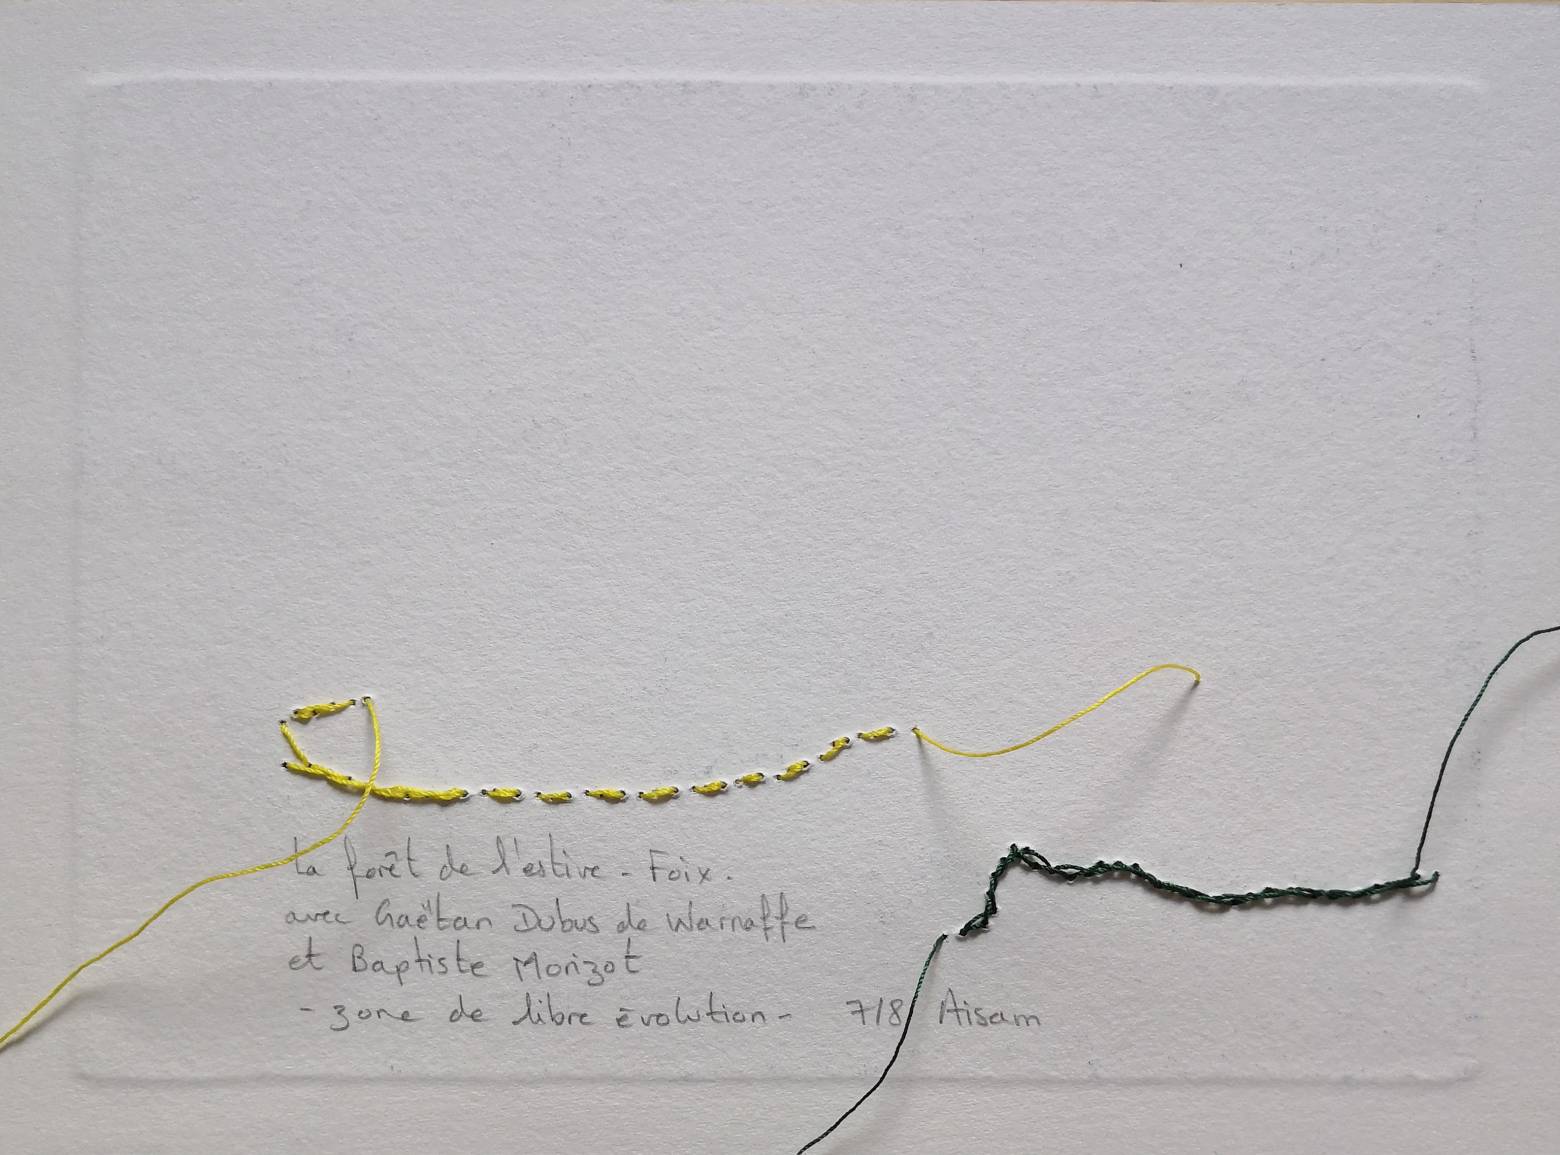 La forêt de l'estive - Foix.
avec Gaëtan Dubus de Warnaffe
et Baptiste Morizot
- zone de libre évolution - 7/8 Aisam